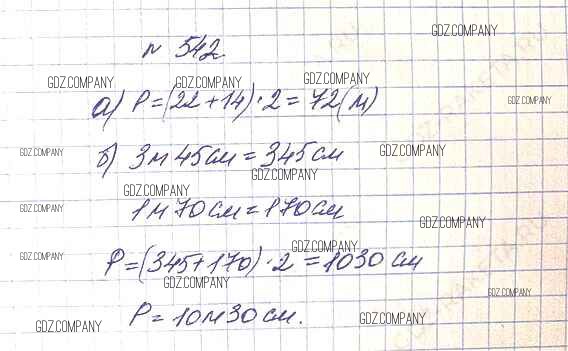 GDZ.COMPANY
№ 542.
GDZ.COMPANY GDZ.COMPANY GDZ.COMPANY
а) P=(22+14)·2=72(м)
GDZ.COMPANY
GDZ.COMPANY
б) 3м45см=345см
GDZ.COMPANY
GDZ.COMPANY
GDZ.COMPANY
1м70см=170см
GDZ.COMPANY
GDZ.COMPANY
GDZ.COMPANY
GDZ.COMPANY
P=(345+170)·2=1030см
GDZ.COMPANY
GDZ.COMPANY
P=10м30см.
GDZ.COMPANY
GDZ.COMPANY